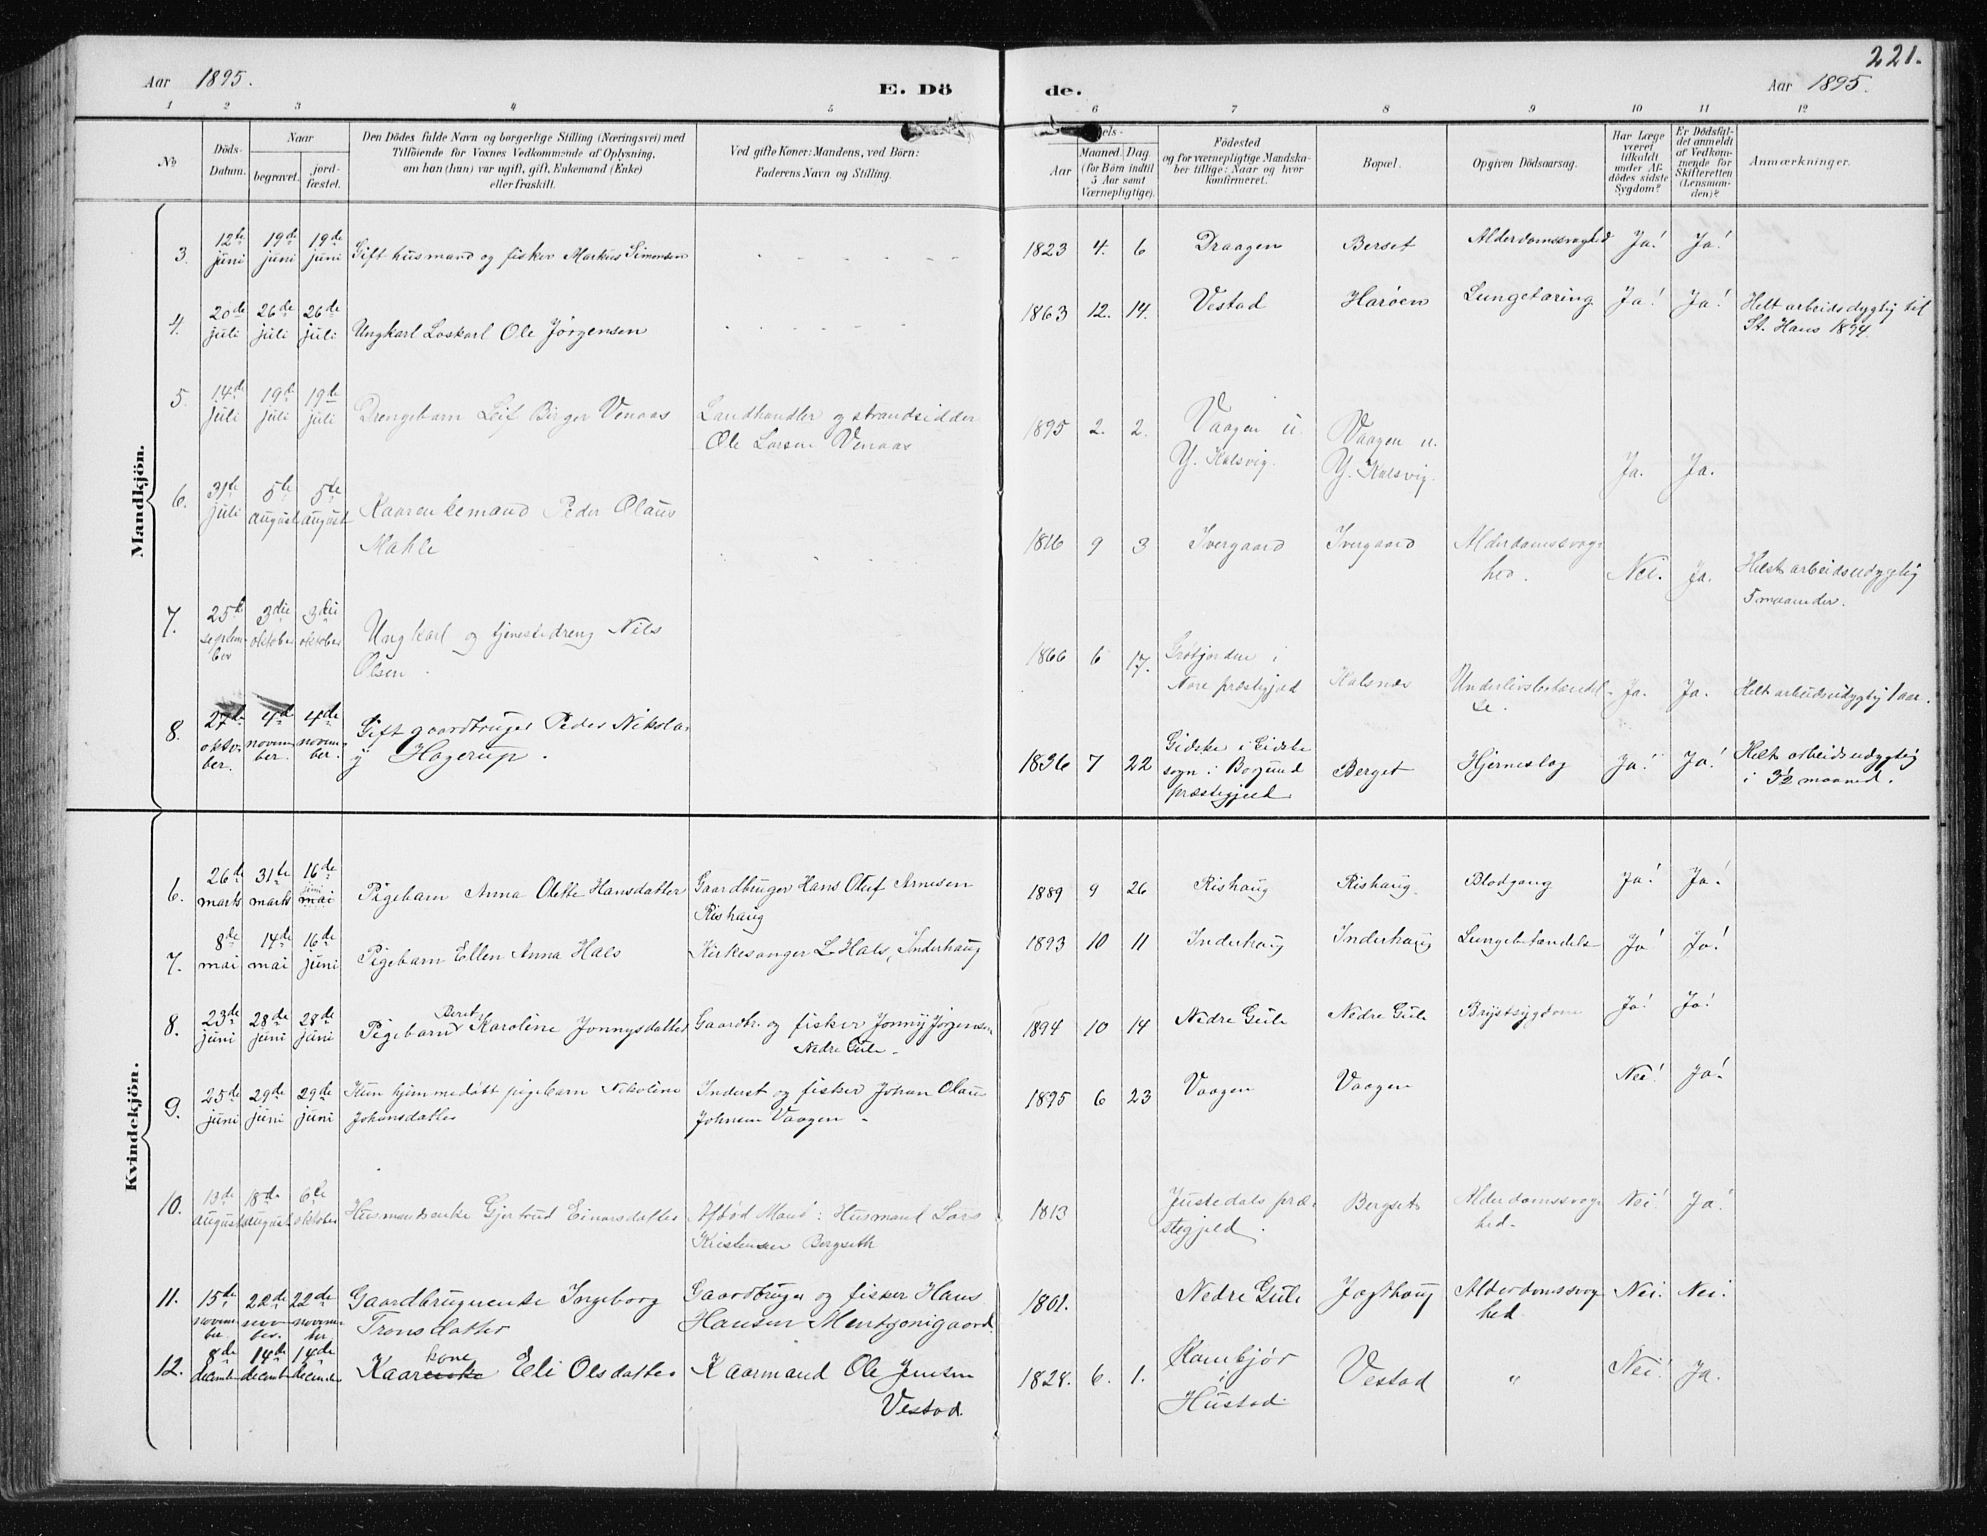 221.
Aar 1895.
E. Dö de.
Aar 1895.
1 2 3 4 5 6 7 8 9 10 11 12
No
Döds-Datum.
Naar
begravet.
jord-fæstet.
Den Dödes fulde Navn og borgerlige Stilling (Næringsvei) med
Tilföiende for Voxnes Vedkommende af Oplysning,
om han (hun) var ugift, gift, Enkemand (Enke)
eller fraskilt.
Ved gifte Koner: Mandens, ved Börn:
Faderens Navn og Stilling.
Aar
Maaned. Dag
(for Börn indtil
5 Aar samt
Værnepligtige).
Födested
og for værnepligtige Mandska-
ber tillige: Naar og hvor
konfirmeret.
Bopæl.
Opgiven Dödsaarsag.
Har Læge
været
tilkaldt
under Af-
dödes sidste
Sygdom?
Er Dödsfal-
det anmeldt
af Vedkom-
mende for
Skifteretten
(Lensman-
den)?
Anmærkninger.
Mandkjön.
3. 12te juni 19de juni 19de juni Gift husmand og fisker Markus Simonsen - - - - - 1823 4. 6 Draagen Berset Alderdomssvaghed Ja! Ja!
4. 20de juli 26de juli 26de juli Ungkarl Løskarl Ole Jørgensen - - - - - 1863 12. 14. Vestad Harøen Lungetæring Ja! Ja! Helt arbeidsdygtig til
St. Hans 1894.
5. 14de juli 19de juli 19de juli Drengebarn Leif Birger Venaas Landhandler og strandsidder
Ole Larsen Venaas 1895 2. 2. Vaagen u.
Y. Kalsvig. Vaagen u.
Y. Kalsvig. Ja. Ja.
6. 31te juli 5te august 5te august Kaarenkemand Peder Olaus
Mahle 1816 9 3 Ivergaard Ivergaard Alderdomssvag-
hed. Nei. Ja. Helst arbeidsudygtig
5 maaneder.
7. 25de september 3die oktober 3die oktober Ungkarl og tjenestedreng Nils
Olsen. 1866 6 17. Grøtjorden i
Nore præstegjæld Kalsnæs Underlivsbetændel-
se. Ja. Ja. Helt arbeidsudygtig 1 aar.
8. 27de oktober. 4de november. 4de november. Gift gaardbruger Peder Nikolai
Hagerup. 1836 7 22 Gidske i Gidske
sogn i Borgund
præstegjeld Berget Hjerneslag Ja! Ja! Helt arbeidsudygtig
i 3½ maaned.
Kvindekjön.
6. 26de marts 31te marts 16de juni mai Pigebarn Anna Olette Hansdatter Gaardbruger Hans Oluf Arnesen
Rishaug 1889 9 26 Rishaug Rishaug Blodgang Ja! Ja!
7. 8de mai 14de mai 16de juni Pigebarn Ellen Anna Hals Kirkesanger L. Hals, Inderhaug 1893 10 11 Inderhaug Inderhaug Lungebetændelse Ja! Ja!
8. 23de juni 28de juni 28de juni Pigebarn Beret Karoline Jonnysdatter Gaardbr. og fisker Jonny Jørgensen
Nedre Gule. 1894 10 14 Nedre Gule Nedre Gule Brystsygdom Ja! Ja!
9. 25de juni 29de juni 29de juni Kun hjemmedøbt pigebarn Nikoline
Johansdatter Inderst og fisker Johan Olaus
Johnsen Vaagen - 1895 6 23 Vaagen Vaagen Nei! Ja!
10. 13de august 18de august 6te oktober Husmandsenke Gjertrud Einarsdatter Afdød Mand: Husmand Lars
Kristensen Bergseth 1813 Justedals præ-
stegjeld. Bergset Alderdomssvag-
hed. Nei! Ja!
11. 15de november. 22de november. 22de november Gaardbrugerenke Ingeborg
Tronsdatter Gaardbruger og fisker Hans
Hansen Mentzonigaard. 1801. Nedre Gule Jagthaug Alderdomssvag-
hed. Nei! Nei.
12. 8de december 14de december 14de december Kaarenke kone Eli Olsdatter Kaarmand Ole Jensen
Vestad. 1828. 6. 1. i
Hustad. Vestad " Nei! Ja.